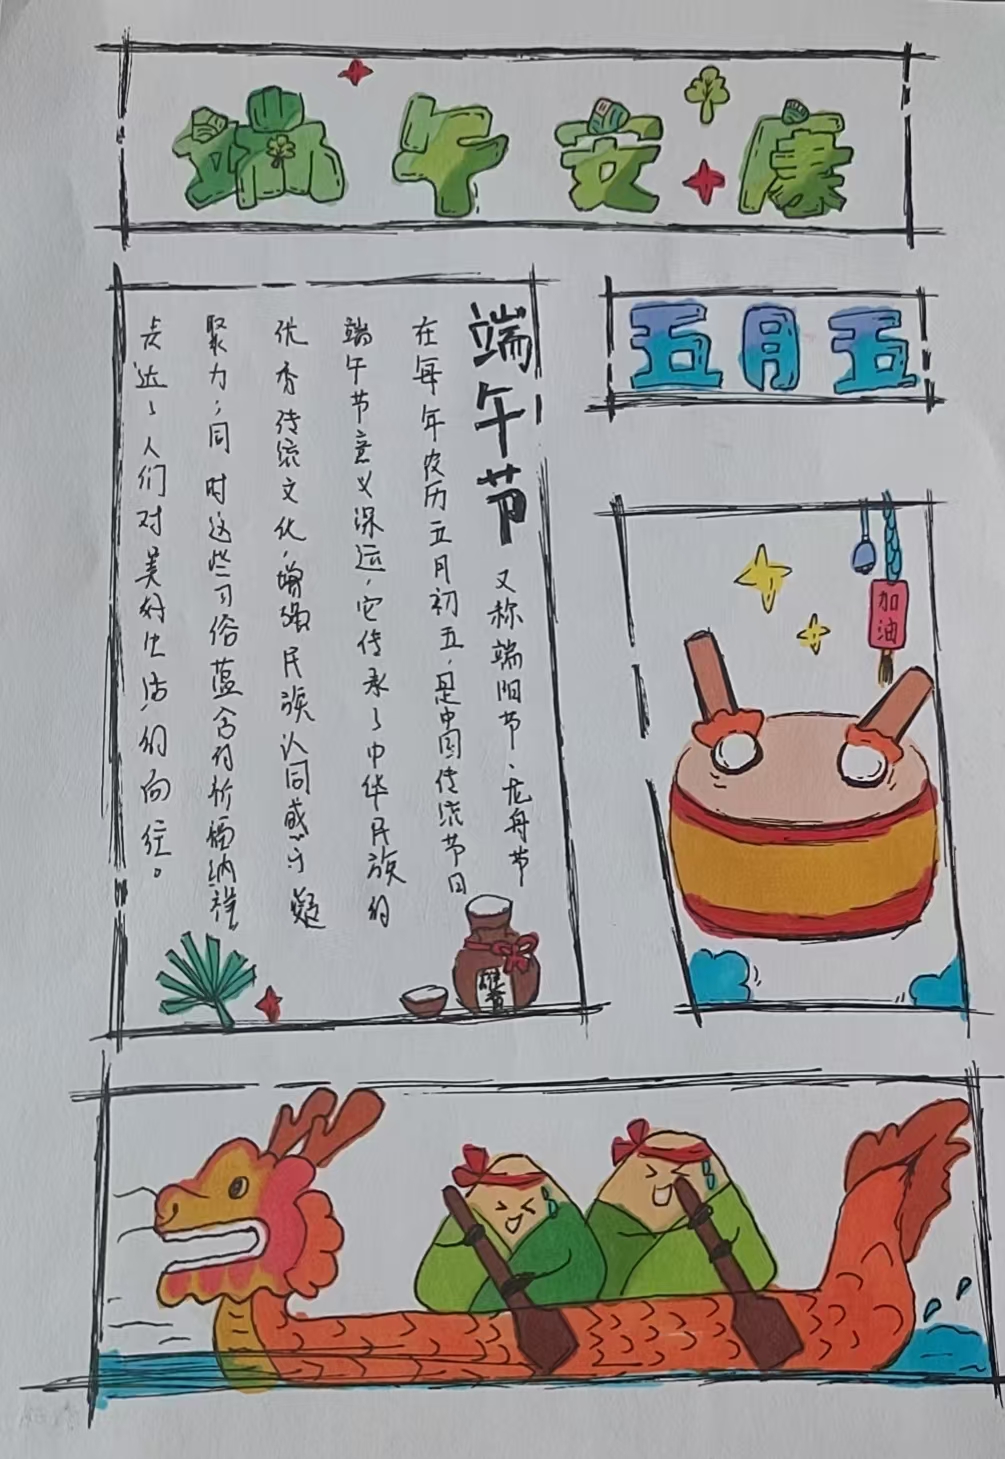 端午安康
五月五
端午节 又称端阳节、龙舟节
在每年农历五月初五,是中国传统节日
端午节意义深远,它传承了中华民族的
优秀传统文化,增强民族认同感与凝
聚力;同时这些习俗蕴含着祈福纳祥
表达了人们对美好生活的向往。
加油
雄黄